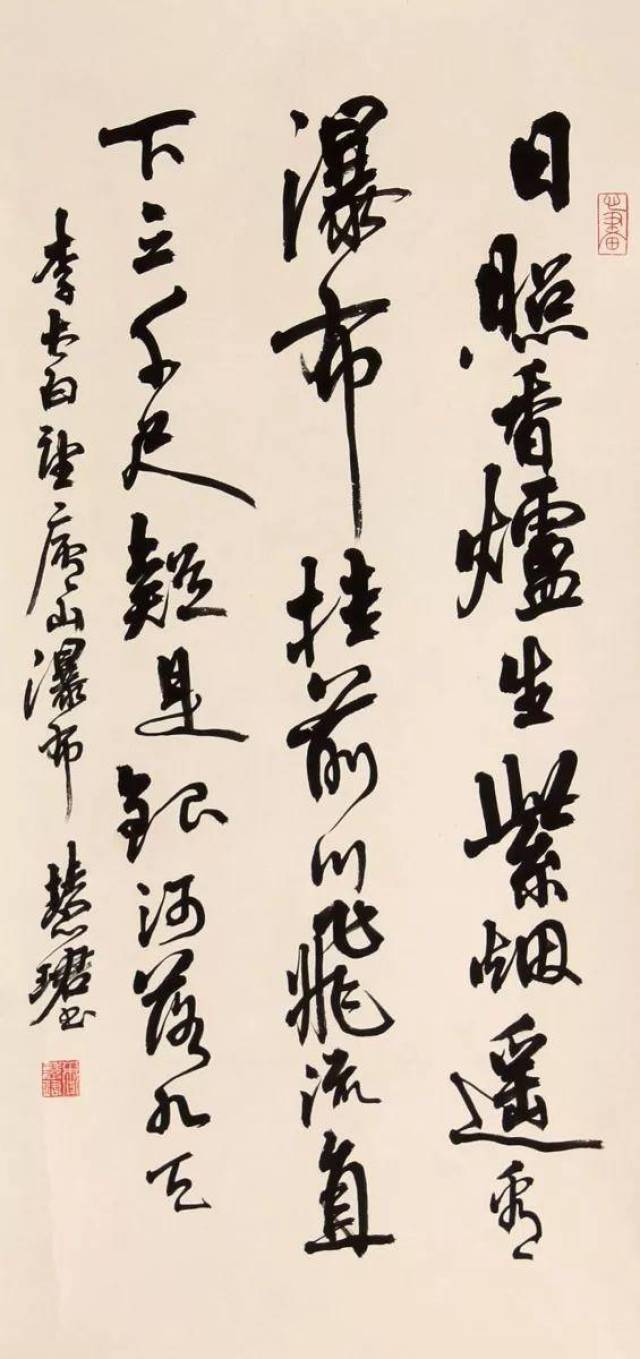 日照香爐生紫烟遥看
瀑布挂前川飛流直
下三千尺疑是銀河落九天
李太白望廬山瀑布 慧珺书